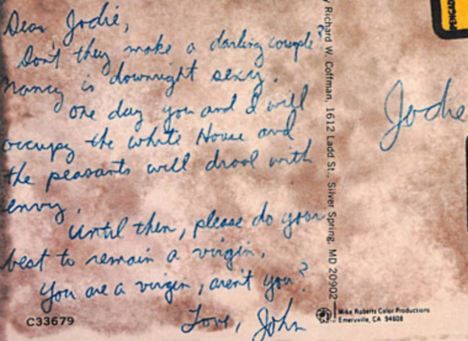 Dear Jodie,
Don't they make a darling couple?
Nancy is downright sexy.
One day you and I will
occupy the White House and
the peasants will drool with
envy.
Until then, please do your
best to remain a virgin.
You are a virgin, aren't you?
Love, John
C33679
y Richard W. Coffman, 1612 Ladd St., Silver Spring, MD 20902
Jodie
Mike Roberts Color Productions
Emeryville, CA 94608